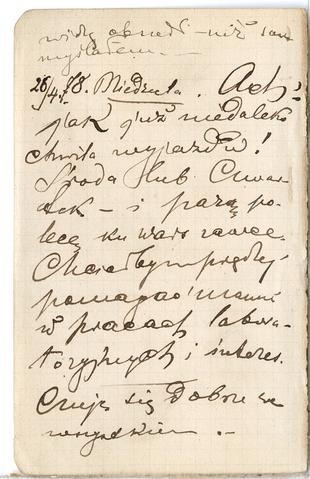 widzę obiad - niż sam
myślałem. -
28/44. 78. Niedziela. Ach!
jak już niedaleko
chwila wyjazdu!
Środa lub Czwar
tek - i parą po-
lecę ku Warszawce.
Chciałbym prędzej
pomagać mamie
w pracach labora-
toryjnych i interes.
Czuję się dobrze we
wszystkiem. -